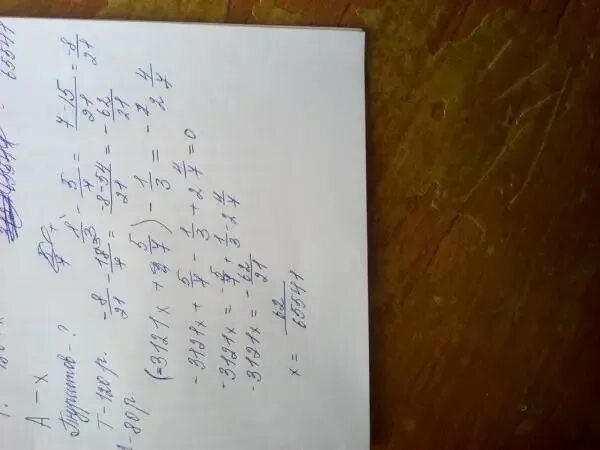 A – x
Туристов – ?
Т – 120 р.
– 80 р
1/3 - 5/7 = (7-15)/21 = -8/21
-8/21 - 18/7 = (-8-54)/21 = -62/21
(-3121x + 5/7) - 1/3 = -2 4/7
-3121x + 5/7 - 1/3 + 2 4/7 = 0
-3121x = -5/7 + 1/3 - 2 4/7
-3121x = -62/21
x = 62/65541